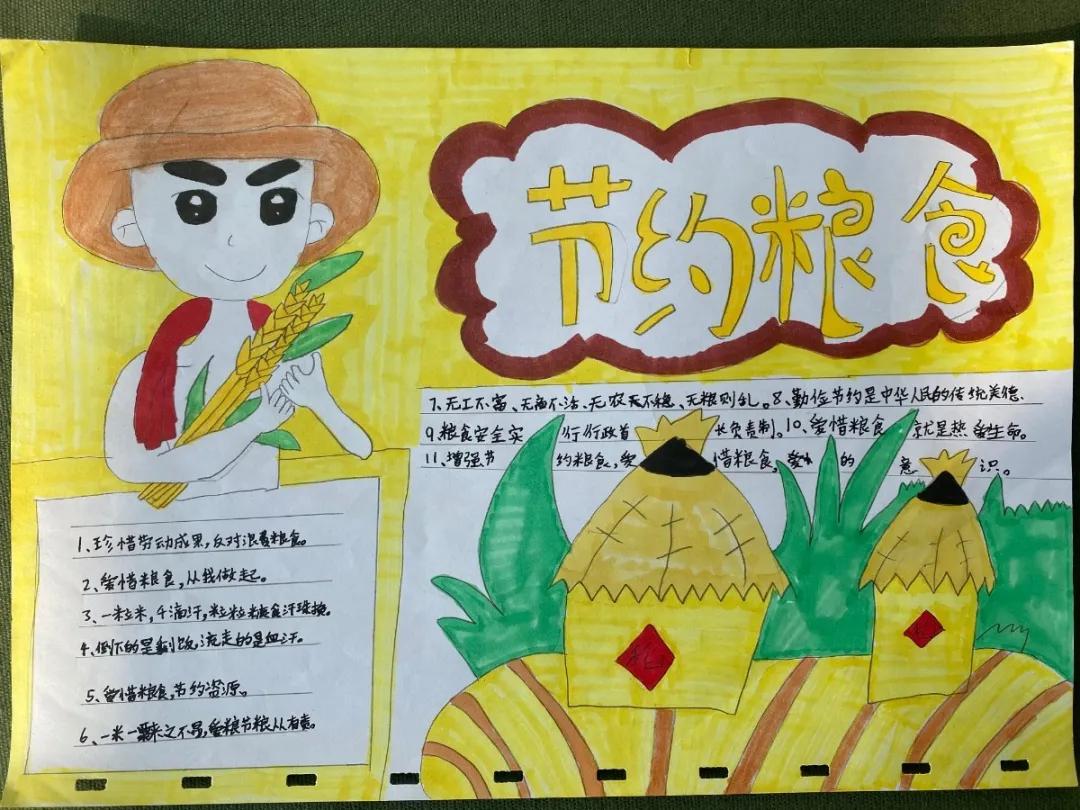 节约粮食
7、无工不富、无商不活、无农天不稳、无粮则乱。8、勤俭节约是中华人民的传统美德.
9、粮食安全实行行政首长负责制。10、爱惜粮食就是热爱生命。
11、增强节约粮食,爱惜粮食,爱的意识。
1、珍惜劳动成果,反对浪费粮食。
2、爱惜粮食,从我做起。
3、一粒米,千滴汗,粒粒粮食汗珠换。
4、倒下的是剩饭,流走的是血汗。
5、爱惜粮食,节约资源。
6、一米一来之不易,爱粮节粮从有责。